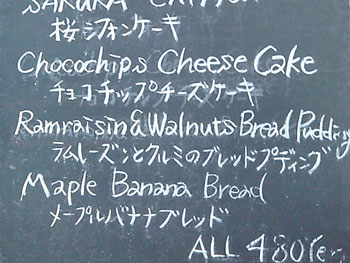 SAKURA CHIFFON
桜シフォンケーキ
Chocochips Cheese Cake
チョコチップチーズケーキ
Ramraisin & Walnuts Bread Pudding
ラムレーズンとクルミのブレッドプディング
Maple Banana Bread
メープルバナナブレッド
ALL 480Yen